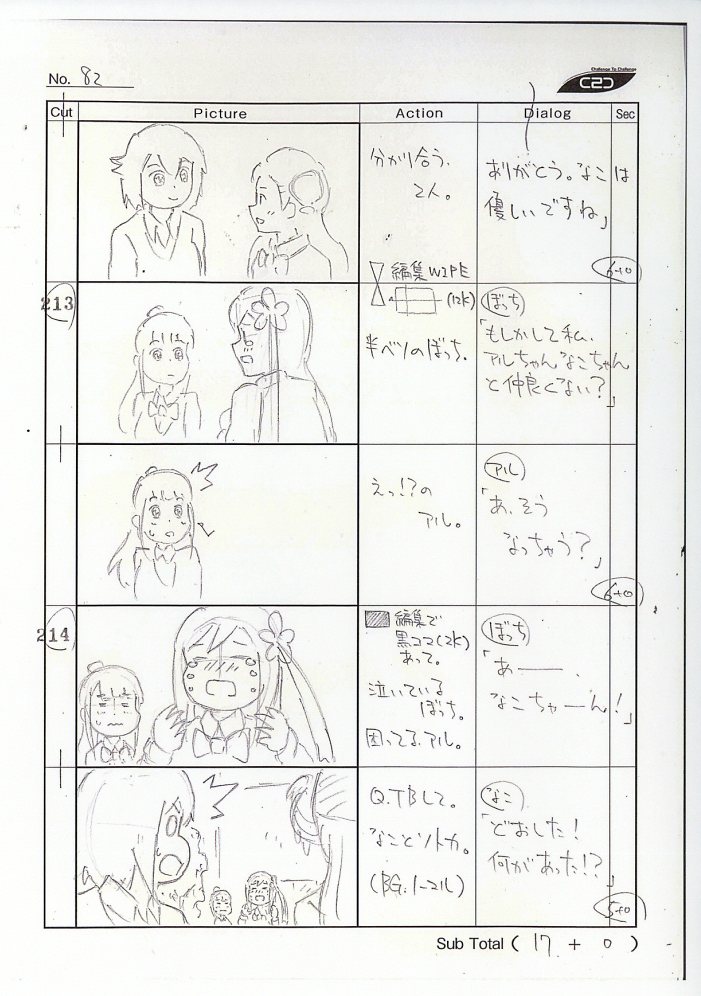 No. 82
Challenge To Challenge
C2C
Cut Picture Action Dialog Sec
分かり合う、
2人。
ありがとう。なこは
優しいですね」
6+0
編集WIPE
(12K)
213
半ベソのぼっち。
ぼっち
「もしかして私、
アルちゃんなこちゃん
と仲良くない?」
えっ!?の
アル。
アル
「あ、そう
なっちゃう?」
6+0
214
編集で
黒コマ(2K)
あって。
泣いている
ぼっち。
困ってるアル。
ぼっち
「あ――、
なこちゃーん!」
Q.TBして。
なことソトカ。
(BG.1-21ル)
なこ
「どおした!
何があった!?」
5+0
Sub Total ( 17 + 0 )